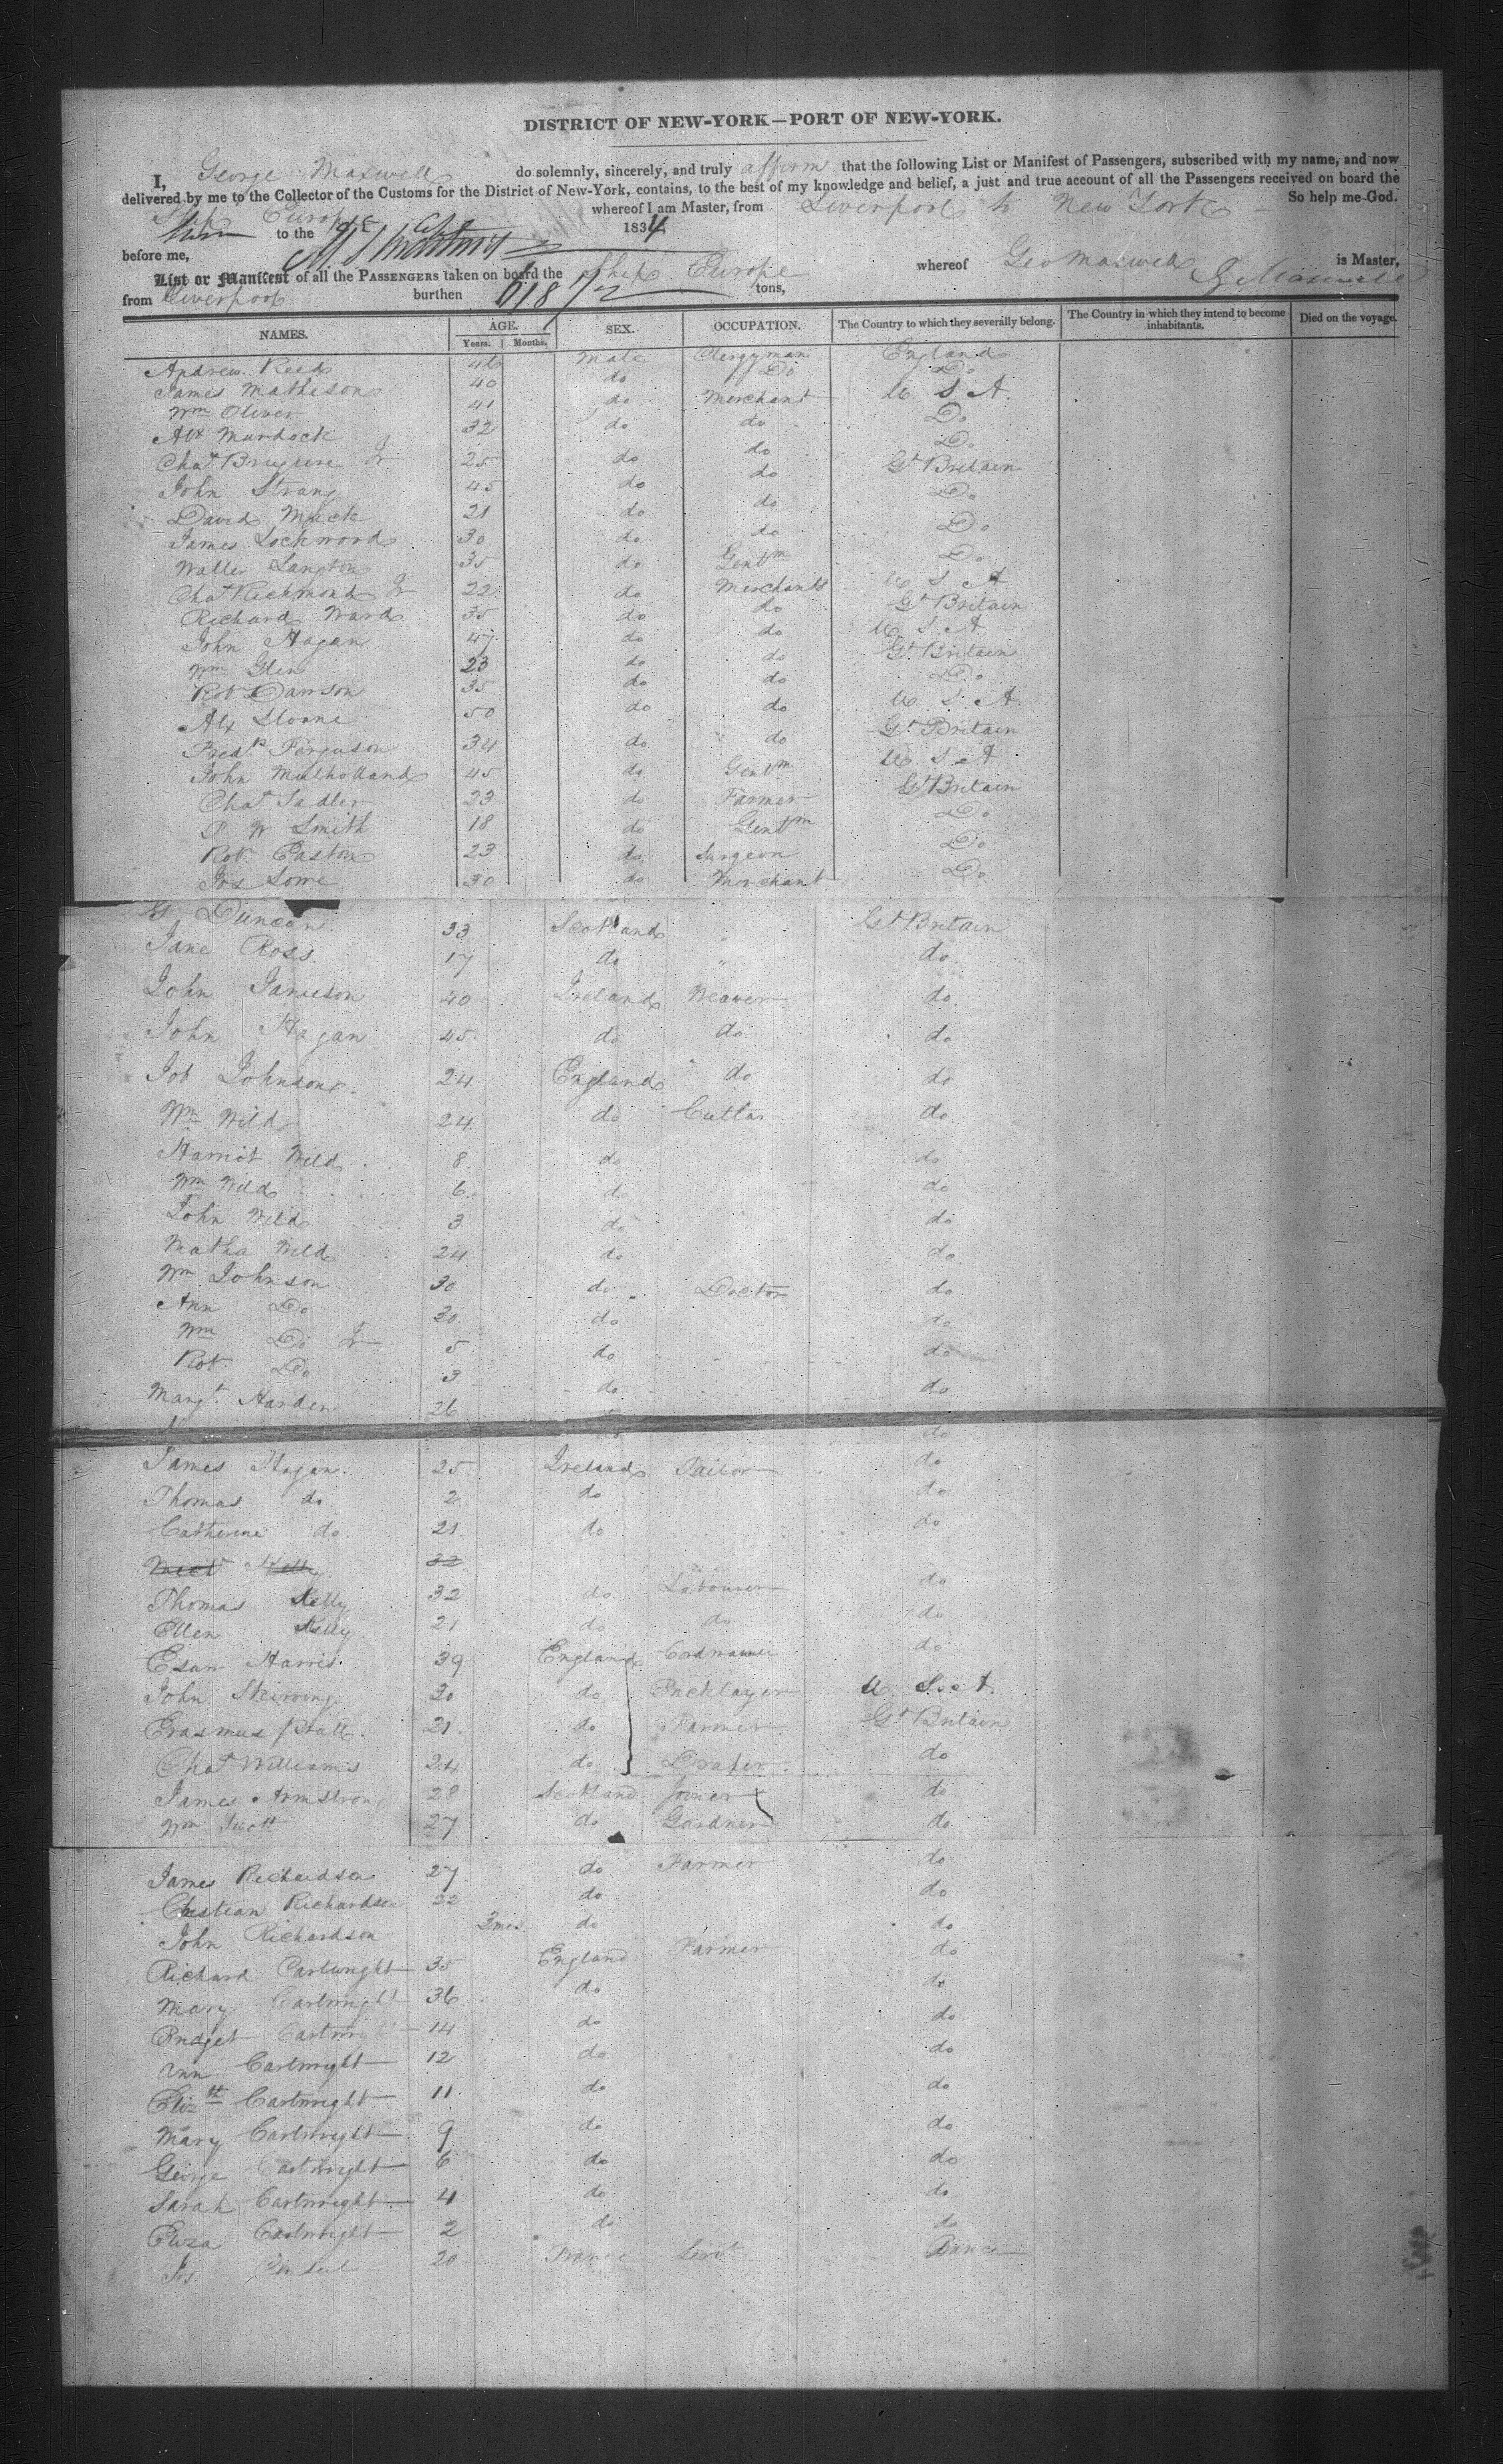 DISTRICT OF NEW-YORK—PORT OF NEW-YORK.
I, George Maxwell do solemnly, sincerely, and truly affirm that the following List or Manifest of Passengers, subscribed with my name, and now
delivered by me to the Collector of the Customs for the District of New-York, contains, to the best of my knowledge and belief, a just and true account of all the Passengers received on board the
Ship Europe whereof I am Master, from Liverpool to New York So help me God.
to the 1834
before me,
List or Manifest of all the PASSENGERS taken on board the Ship Europe whereof Geo Maxwell is Master,
from Liverpool burthen 618 tons, G Maxwell
NAMES. AGE. SEX. OCCUPATION. The Country to which they severally belong. The Country in which they intend to become inhabitants. Died on the voyage.
Years. Months.
Andrew Reed 46 Male Clergyman England
James Matheson 40 do Do Do
Wm Oliver 41 do Merchant U. S. A.
Alx Murdock 32 do do Do
Chas Bruguiere Jr 25 do do Do
John Strang 45 do do Gt Britain
David Mack 21 do do Do
James Lockwood 30 do do Do
Walter Langton 35 do Gentm Do
Chas Richmond Jr 22 do Merchants U S A
Richard Ward 35 do do Gt Britain
John Hagan 47 do do U. S. A
Wm Glen 23 do do Gt Britain
Robt Dawson 35 do do Do
Alx Sloane 50 do do U. S. A.
Fredk Ferguson 34 do do Gt Britain
John Mulholland 45 do Gentm U S A
Chas Sadler 23 do Farmer Gt Britain
W Smith 18 do Gentm Do
Robt Easton 23 do Surgeon Do
Jos Lowe 30 do Merchant Do
Duncan 33 Scotland " Gt Britain
Jane Ross 17 do " do
John Jamieson 40 Ireland Weaver do.
John Hagan 45 do do do
Job Johnson 24 England do do
Wm Wild 24 do Cutlar do
Harriot Wild 8 do do
Wm Wild 6 do do
John Wild 3 do do
Matha Wild 24 do do
Wm Johnson 30 do Doctor do
Ann Do 30 do do
Wm Do Jr 5 do do
Robt Do 3 do do
Margt Harden 26 do
James Hagan 25 Ireland Tailor do
Thomas do 2 do do
Catherine do 21 do do
Kelly 32
Thomas Kelly 32 do Labourer do
Ellen Kelly 21 do do do
Esau Harris 39 England Cordwainer do
John Skirving 30 do Bricklayer U. S. A.
Erasmus Pratt 21 do Farmer Gt Britain
Chas Williams 24 do Draper do
James Armstrong 28 Scotland Joiner do
Wm Scott 27 do Gardner do
James Richardson 27 do Farmer do
Christian Richardson 22 do do
John Richardson 3mos do do
Richard Cartwright 35 England Farmer do
Mary Cartwright 36 do do
Bridget Cartwright 14 do do
Ann Cartwright 12 do do
Elizth Cartwright 11 do do
Mary Cartwright 9 do do
George Cartwright 6 do do
Sarah Cartwright 4 do do
Eliza Cartwright 2 do do
Jos 20 France Servt France